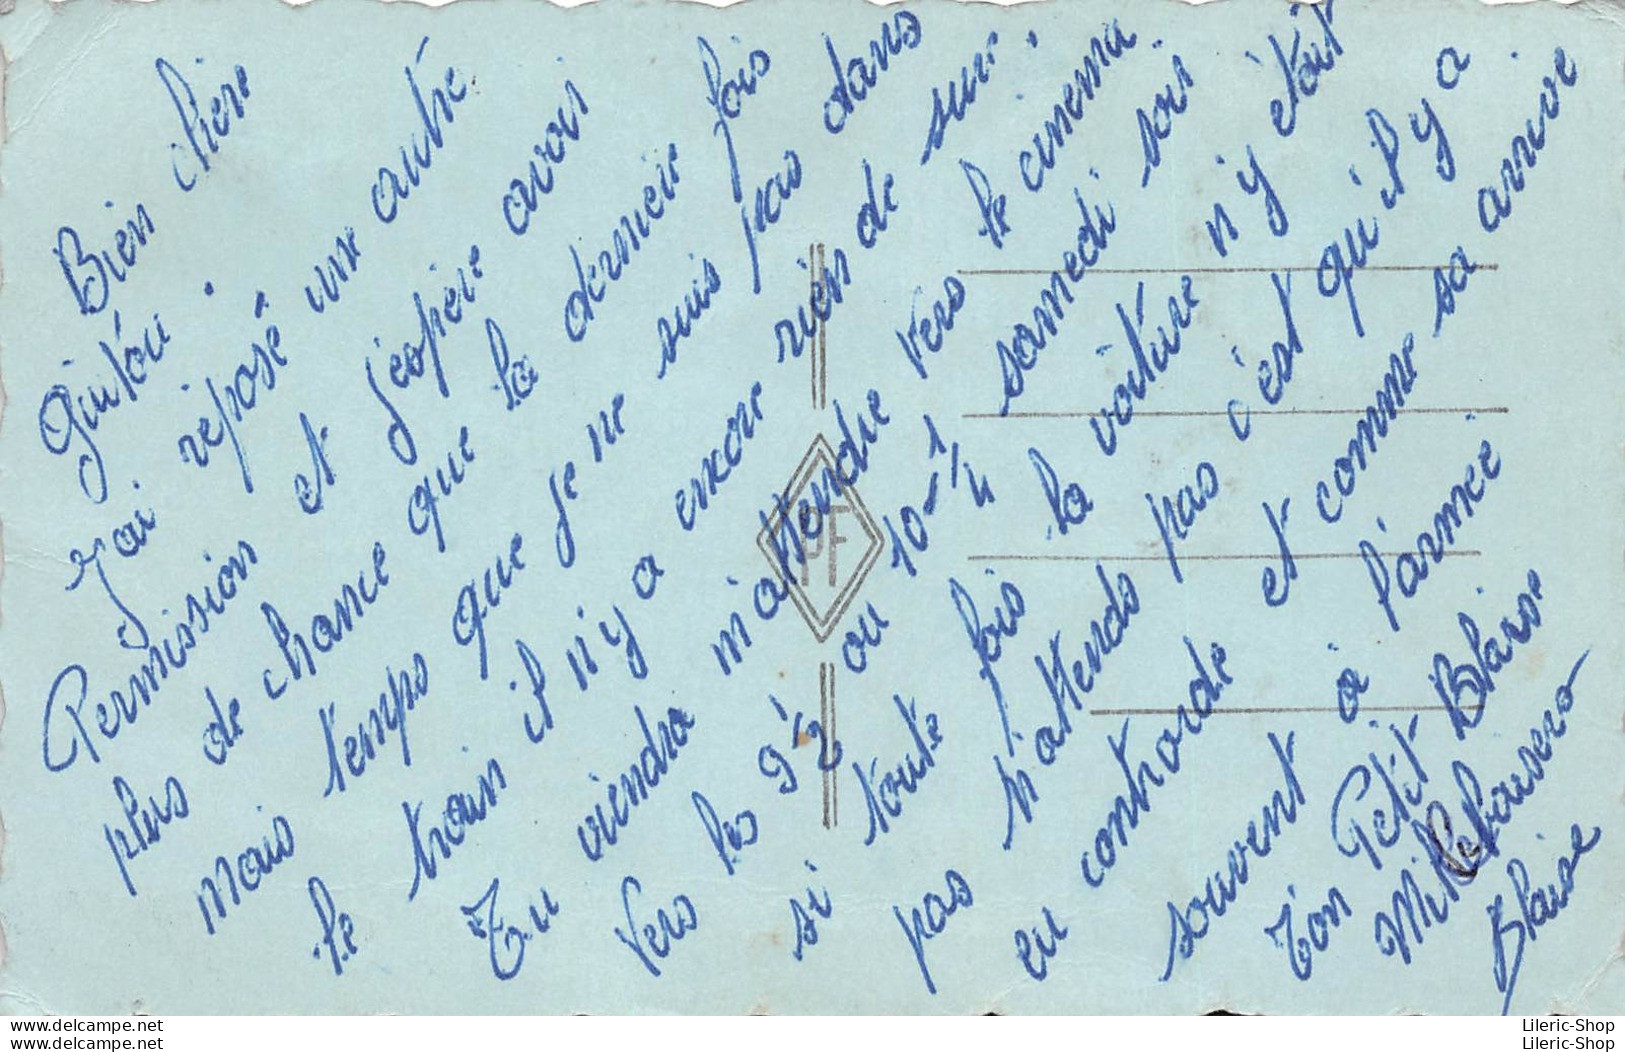 Bien chère
Guitou.
J'ai réposé une autre
Permission et j'espère avoir
plus de chance que la dernière fois
mais temps que je ne suis pas dans
le train il n'y a encore rien de sur.
Tu viendra m'attendre vers le cinema
vers les 9½ ou 10-¼ samedi soir
si toute fois la voiture n'y était
pas n'attends pas c'est qu'il y a
eu controrde et comme sa arrive
souvent à l'armée
Ton Petit Blaise
Mille baisers
Blaise
PF
www.delcampe.net
www.delcampe.net
Lileric-Shop
Lileric-Shop